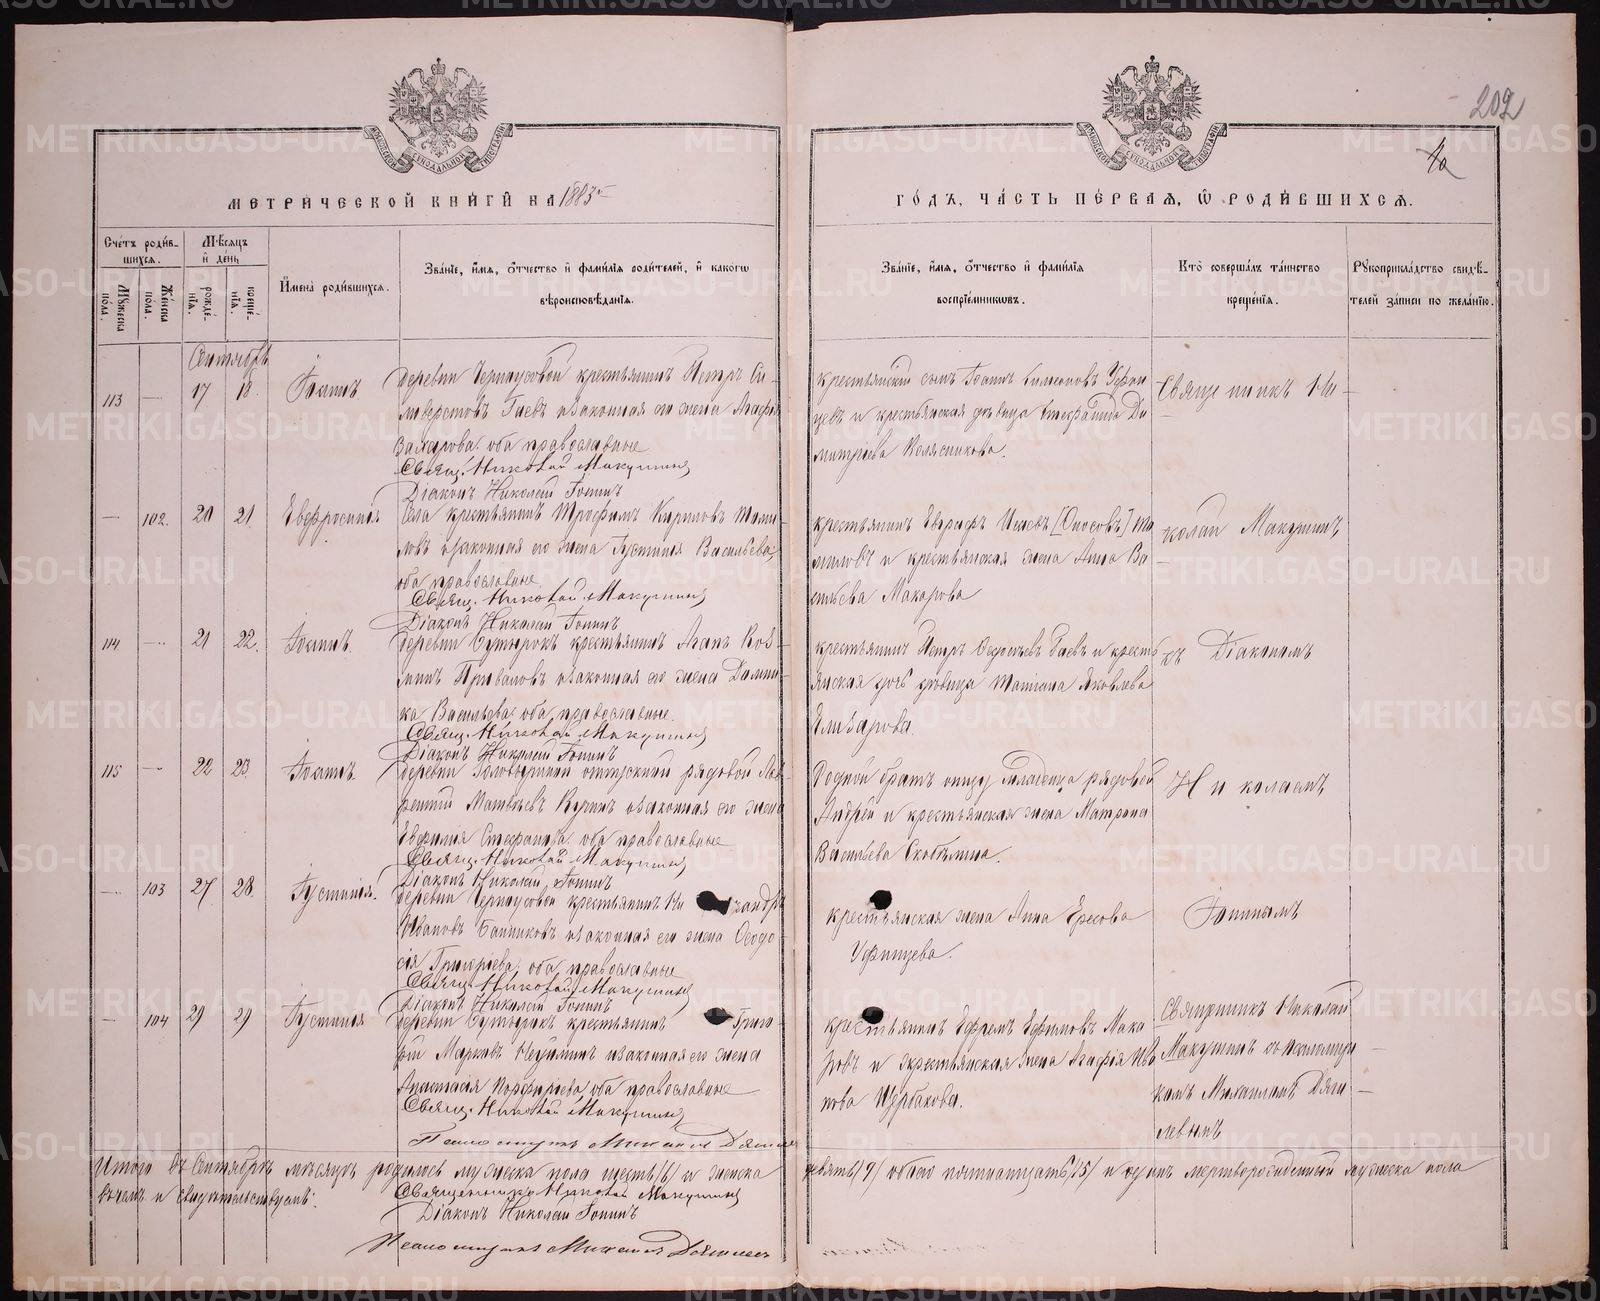 202
МЕТРИЧЕСКОЙ КНИГИ НА 1883й
ГОДЪ, ЧАСТЬ ПЕРВАЯ, Ѡ РОДИВШИХСЯ.
Счетъ родившихся.
Мужеска пола.
Женска пола.
Мѣсяцъ и день
рожденія.
крещенія.
Имена родившихся.
Званіе, имя, отчество и фамилія родителей, и какогѡ вѣроисповѣданія.
Званіе, имя, отчество и фамилія воспріемникѡвъ.
Кто совершалъ таинство крещенія.
Рукоприкладство свидѣтелей записи по желанію.
Сентябрь
113 — 17 18. Іоаннъ
деревни Черноусовой крестьянинъ Петръ Си-
ливерстовъ Гаевъ и законная его жена Агафія
Захарова оба православные
Свящ. Николай Макушинъ
Діаконъ Николай Іонинъ
крестьянскій сынъ Іоаннъ Симеоновъ Уфин-
цевъ и крестьянская дѣвица Стефанида Ди-
митріева Колясникова.
Священникъ Ни-
— 102. 20 21. Евфросинія
Села крестьянинъ Трофимъ Кириловъ Томи-
ловъ и законная его жена Іустинія Васильева,
оба православные.
Свящ. Николай Макушинъ
Діаконъ Николай Іонинъ
крестьянинъ Евграфъ Исаевъ [Оносовъ] То-
миловъ и крестьянская жена Анна Ва-
сильева Макарова
колай Макушинъ
114 — 21 22. Іоаннъ.
деревни Бутырокъ крестьянинъ Агапъ Коз-
минъ Приваловъ и законная его жена Домни-
ка Васильева оба православные.
Свящ. Николай Макушинъ
Діаконъ Николай Іонинъ
крестьянинъ Петръ Ѳедосѣевъ Гаевъ и кресть-
янская дочь дѣвица Татіана Яковлева
Елизарова.
съ Діакономъ
115 — 22 23. Іоаннъ.
деревни Головыриной отпускный рядовой Лав-
рентій Матвѣевъ Кузинъ и законная его жена
Евфимія Стефанова оба православные
Свящ. Николай Макушинъ
Діаконъ Николай Іонинъ
Родной братъ отцу младенца рядовой
Андрей и крестьянская жена Матрона
Васильева Скобѣлина.
Николаемъ
— 103 27 28. Іустинія.
деревни Черноусовой крестьянинъ
Ивановъ Банниковъ и законная его жена Ѳеодо-
сія Григорьева, оба православные
Свящ. Николай Макушинъ
Діаконъ Николай Іонинъ
крестьянская жена Анна
Уфинцева.
Іонинымъ
— 104 29 29 Іустинія
деревни Бутырокъ крестьянинъ Григо-
рій Марковъ и законная его жена
Анастасія Порфирьева, оба православные
Свящ. Николай Макушинъ
Псаломщикъ Михаилъ
крестьянинъ Ефремъ Ефимовъ Мака-
ровъ и крестьянская жена Агафія Ива-
нова Щербакова.
Священникъ Николай
Макушинъ съ псаломщи-
комъ Михаиломъ Дяги-
левымъ
Итого въ Сентябрѣ мѣсяцѣ родилось мужеска пола шесть /6/ и женска девять /9/ обоего пятнадцать /15/ и одинъ мертворожденный мужеска пола
въ чемъ и свидѣтельствуемъ:
Священникъ Николай Макушинъ
Діаконъ Николай Іонинъ
Псаломщикъ Михаилъ
METRIKI.GASO-URAL.RU